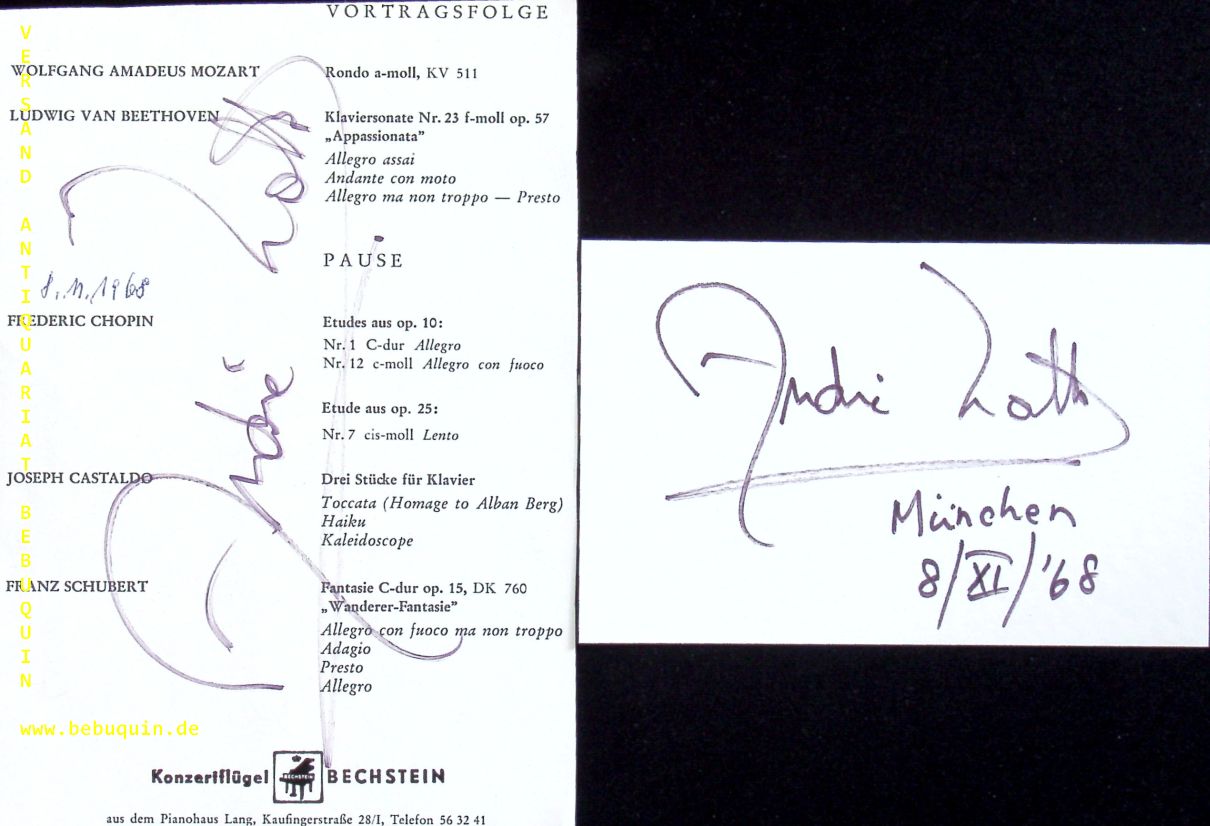 VORTRAGSFOLGE
WOLFGANG AMADEUS MOZART Rondo a-moll, KV 511
LUDWIG VAN BEETHOVEN Klaviersonate Nr. 23 f-moll op. 57
„Appassionata”
Allegro assai
Andante con moto
Allegro ma non troppo — Presto
PAUSE
8.11.1968
FREDERIC CHOPIN Etudes aus op. 10:
Nr. 1 C-dur Allegro
Nr. 12 c-moll Allegro con fuoco
Etude aus op. 25:
Nr. 7 cis-moll Lento
JOSEPH CASTALDO Drei Stücke für Klavier
Toccata (Homage to Alban Berg)
Haiku
Kaleidoscope
FRANZ SCHUBERT Fantasie C-dur op. 15, DK 760
„Wanderer-Fantasie”
Allegro con fuoco ma non troppo
Adagio
Presto
Allegro
Konzertflügel BECHSTEIN BECHSTEIN
aus dem Pianohaus Lang, Kaufingerstraße 28/I, Telefon 56 32 41
VERSAND ANTIQUARIAT BEBUQUIN
www.bebuquin.de
André
André
München
8/XI/'68